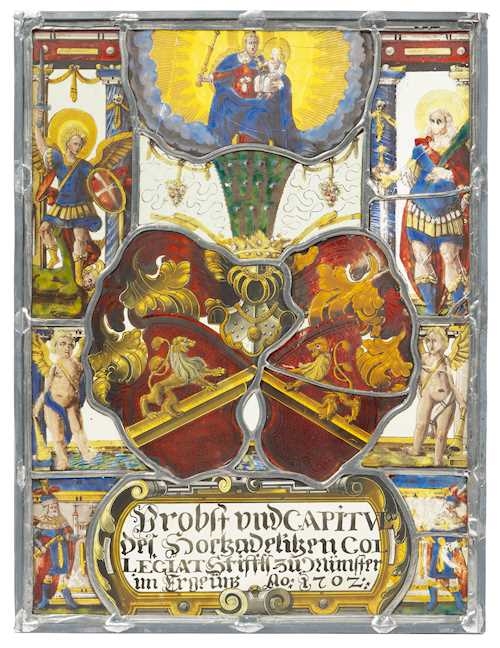 Probst und CAPITVL
des Hochadelichen COL
LEGIAT Stiffts zu Münster
im Ergeüw Ao: 1702: